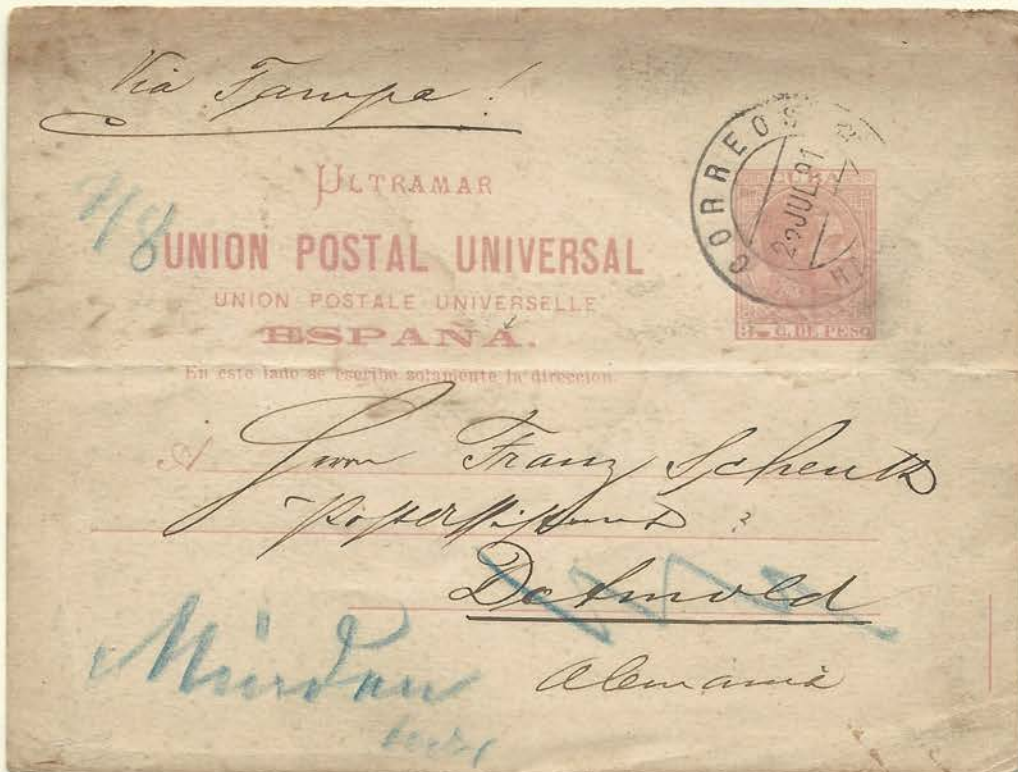 Via Tampa!
ULTRAMAR
UNION POSTAL UNIVERSAL
UNION POSTALE UNIVERSELLE
ESPAÑA.
En este lado se escribe solamente la direccion
CORREOS
29 JUL 91
CUBA
C. DE PESO
A Herrn Franz Schenk
Postassistent
Detmold
Minden
Alemania